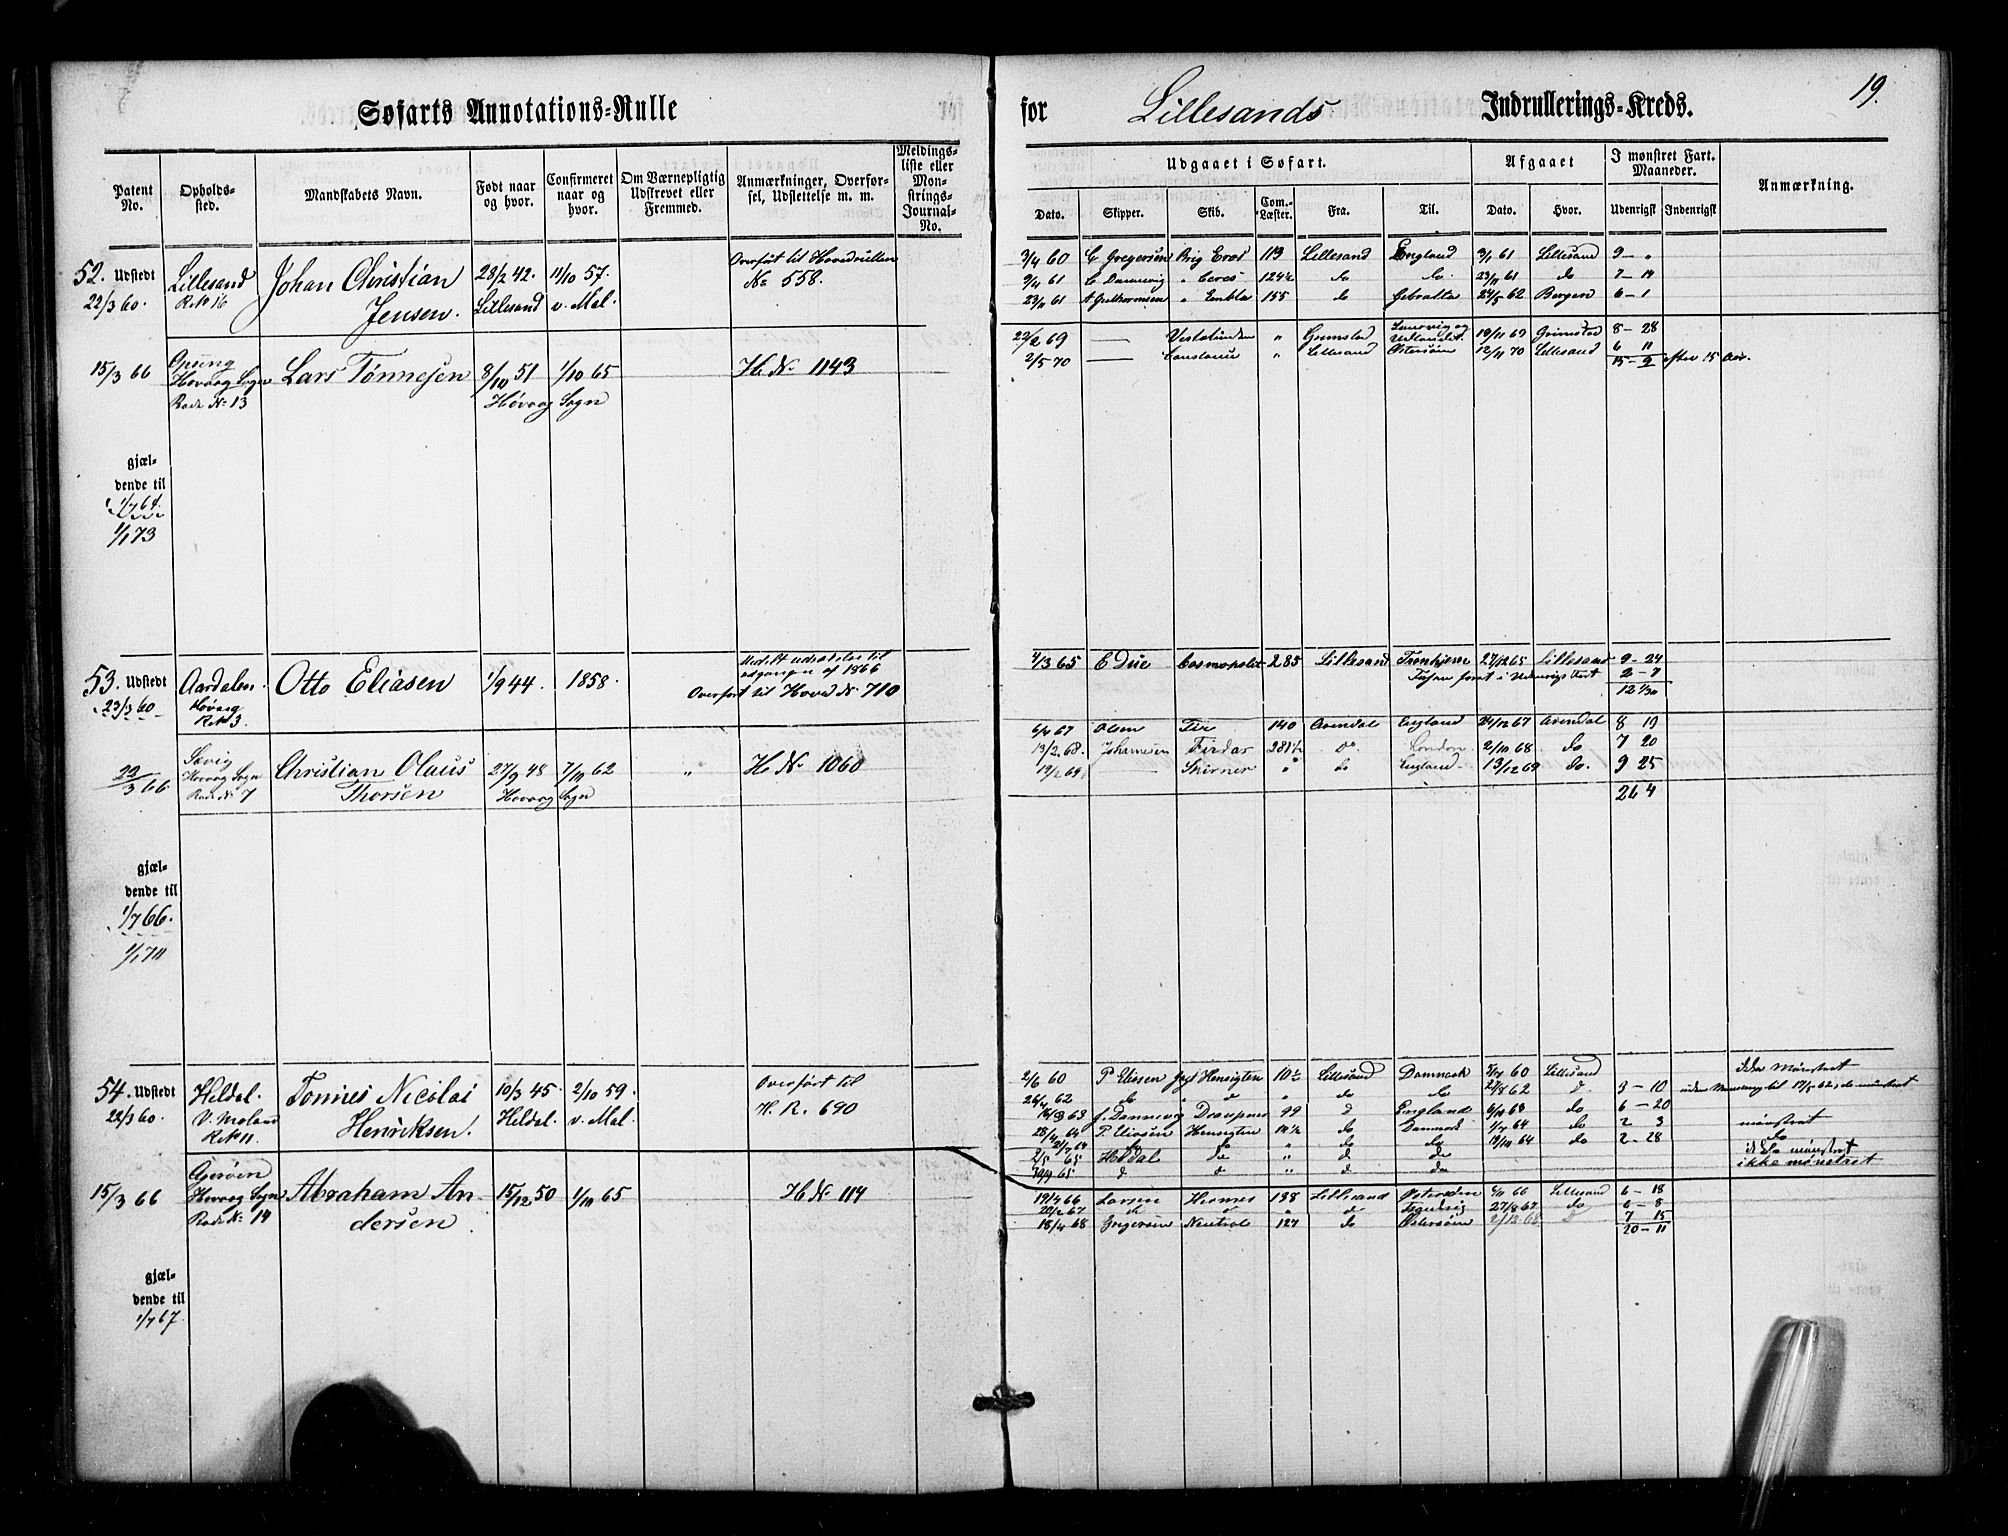 Søfarts Annotations-Rulle
for Lillesands Indrullerings-Kreds.
19.
Patent No.
Opholdssted.
Mandskabets Navn.
Født naar og hvor.
Confirmeret naar og hvor.
Om Værnepligtig Udskrevet eller Fremmed.
Anmærkninger, Overførsel, Udslettelse m. m.
Meldingsliste eller Mønstrings-Journal-No.
Udgaaet i Søfart.
Dato. Skipper. Skib. Com.-Læster. Fra. Til.
Afgaaet
Dato. Hvor.
I mønstret Fart. Maaneder.
Udenrigsk Indenrigsk
Anmærkning.
52. Udstedt Lillesand Johan Christian 28/2 42. 11/10 57. Overført til Hovedrullen
22/3 60. Rek 16 Jensen. Lillesand v. Mal. No 558.
3/4 60 C Gregersen Brig Eros 119 Lillesand England 9/1 61 Lillesand 9 - "
9/4 61 C Dannevig " Ceres 124½ do do. 23/11 61 do 7 - 14
23/11 61 " Embla 155 do Gibralta 24/5 62 Bergen 6 - 1
15/3 66 Hovaag Sogn Lars Tønnesen 8/10 51 1/10 65 H. No 1143
Rode No 13 Høvaag Sogn
22/2 69 — " Grimstad 19/11 69 Grimstad 8 - 28
2/5 70 — " Lillesand Østersøen 12/11 70 Lillesand 6 11
15 - 9 efter 15 Aar.
gjældende til
1/7 64.
1/1 73
53. Udstedt Aardalen. Otto Eliasen 1/9 44. 1858.
23/3 60 Høvaag Overført til Hoved No 710
Rek 3.
4/3 65 C Due Cosmopolit 285 Lillesand Tronhjem 27/12 65 Lillesand 9 - 24
2 - 7
12 1/30
22/3 66 Hovaag Sogn Christian Olaus 27/9 48 7/10 62 " H. No 1060
Rode No 7 Thorsen Hovaag Sogn
6/4 67 Olsen 140 Arendal England 24/12 67 Arendal 8 19
13/2 68. Johannesen Fírdas 281½ do London 2/10 68. do 7 20
19/2 69 — Skirner " do England 13/12 69 do. 9 25
26 4
gjældende til
1/7 66.
1/1 70
54. Udstedt Heldal. Tønnes Nicolai 10/3 45. 2/10 59. Overført til
22/3 60. V. Moland Henriksen. Heldal. v. Mal. H. R. 690
Rek 11.
2/6 60 P. Eliesen Jagt Hensigten 10½ Lillesand Danmark 60 Lillesand ikke Mønstret
62 do " do " do do 62 3 - 10
63 Dannevig Draupner 99 England 63 do 6 - 20
64 P. Eliesen Hensigten 10½ do Danmark 1/7 64 do 2 3 mønstret
64 do do " do do 19/10 64 do 2 - 28 do
65 Heldal do " do ikke mønstret
65 " do ikke mønstret
15/3 66 Hovaag Sogn Abraham Andersen 15/12 50 1/10 65 H. No 114
Rode No 14
19/4 66 Larsen Hermes 138 Lillesand Østersøen 66 Lillesand 6 - 18
67 " 27/8 67 do 6 - 8
18/4 68 Gregersen Neutral 127 do Østersøen 2/12 68 7 15
20 - 11
gjældende til
1/7 67.